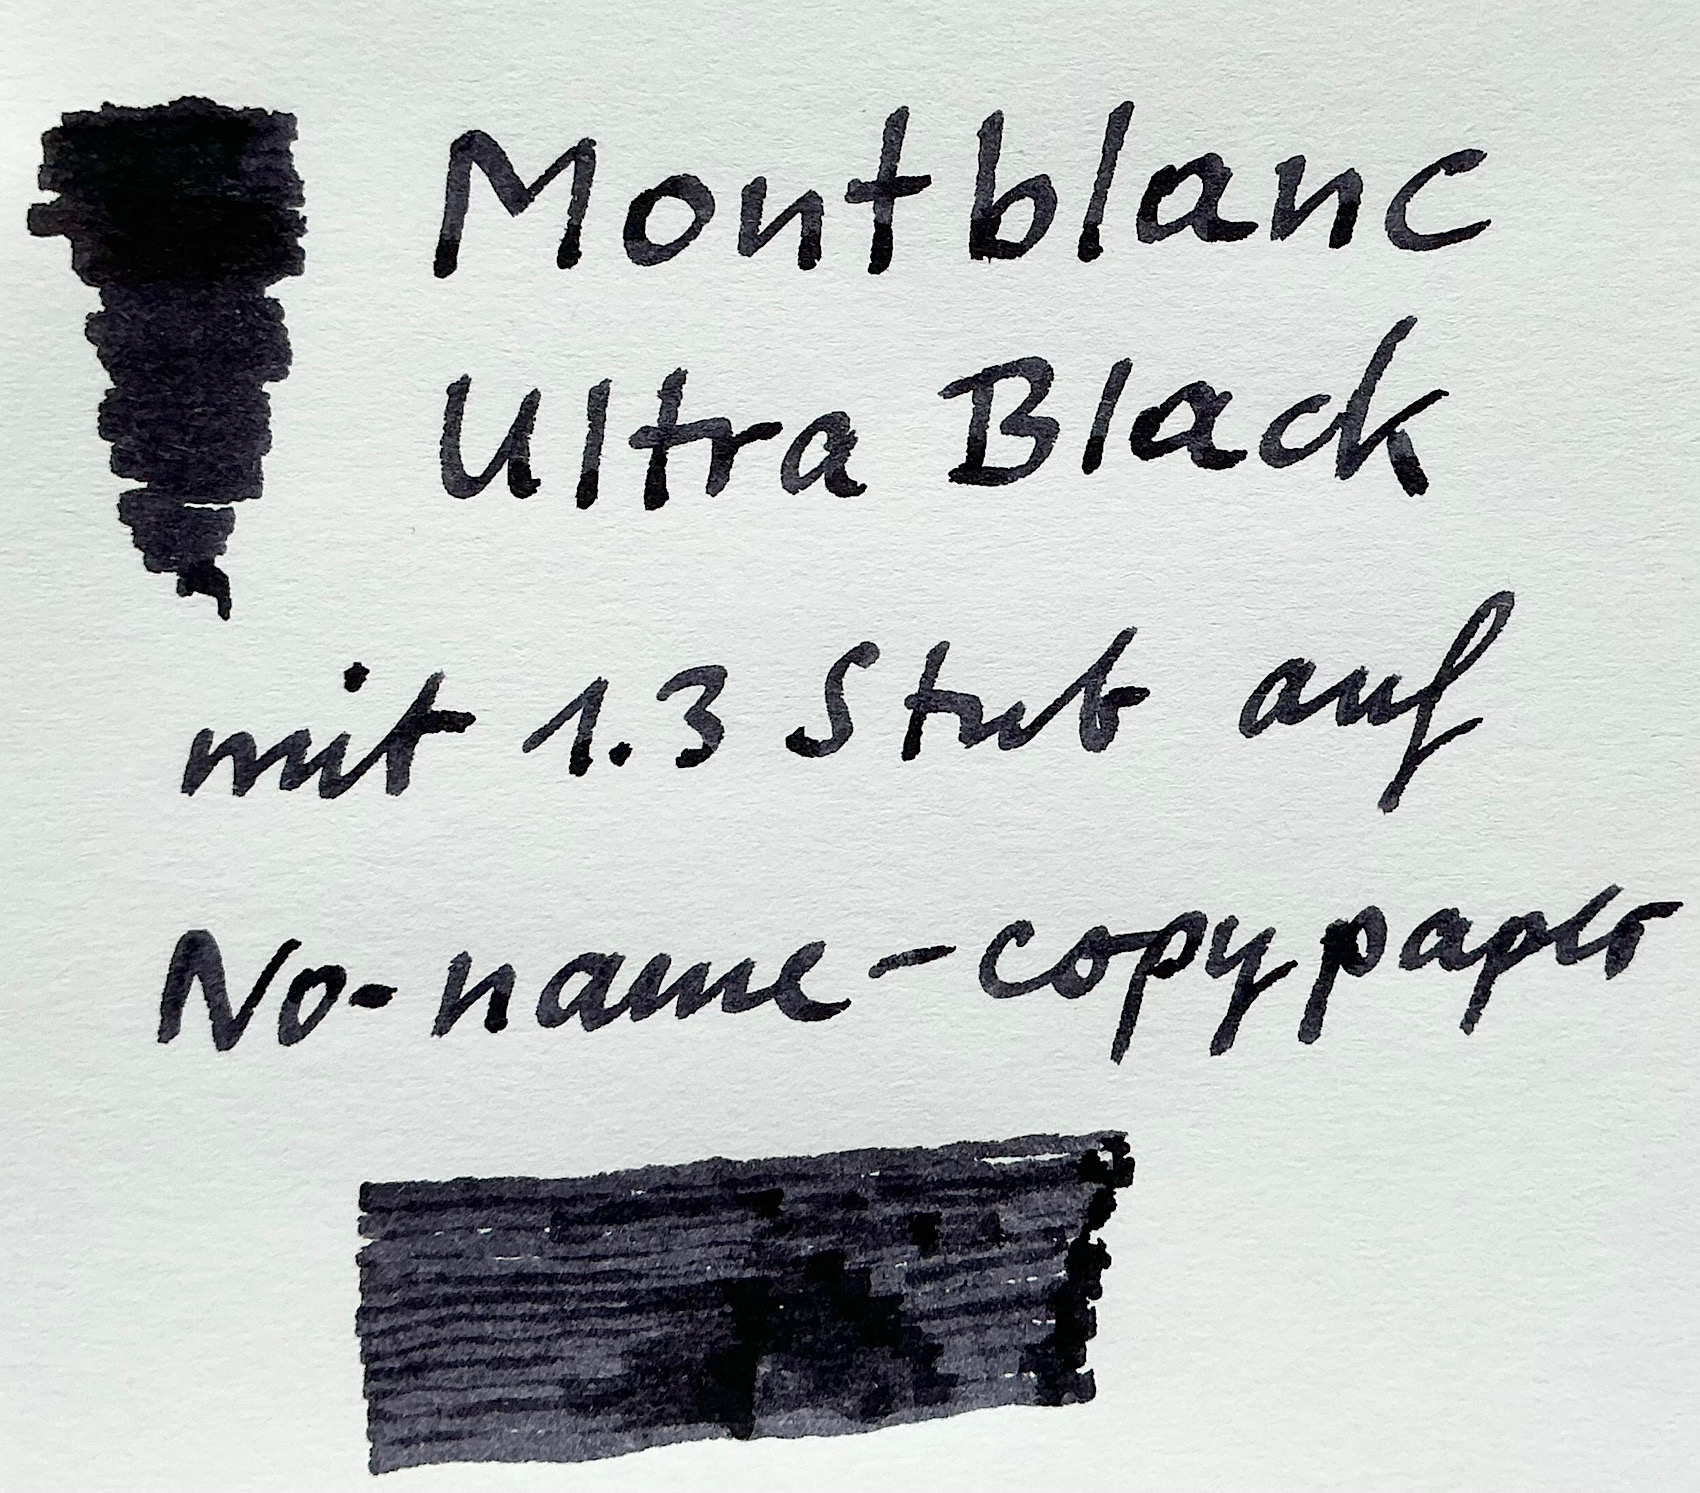 Montblanc
Ultra Black
mit 1.3 Stub auf
No-name-copypaper